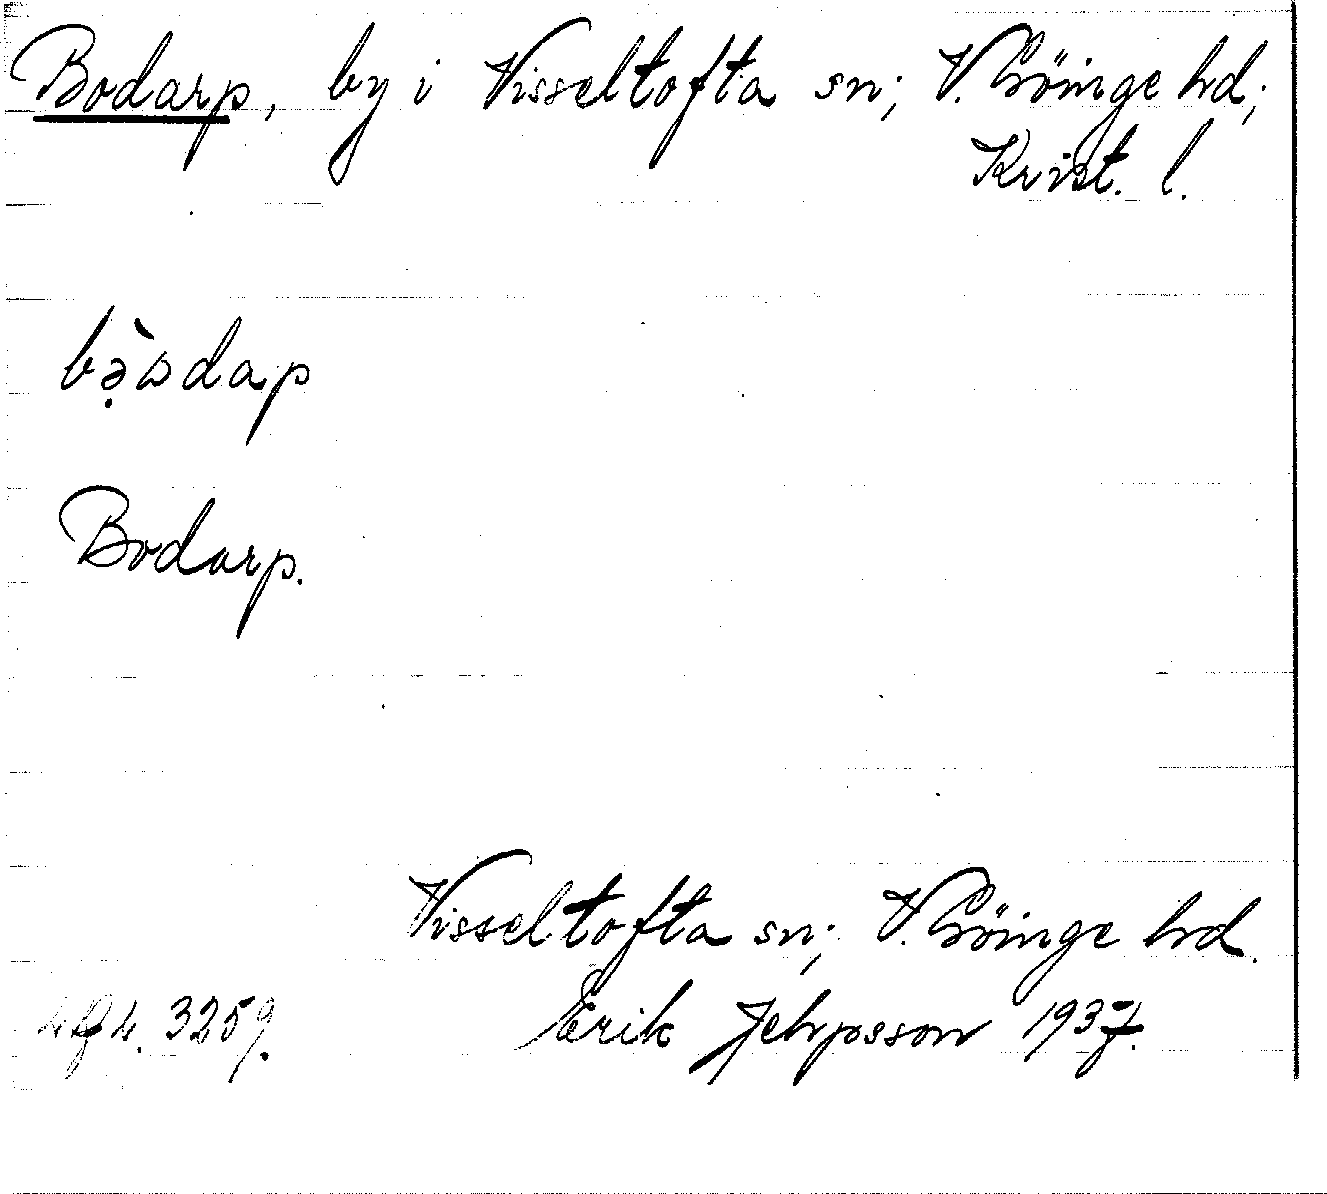 Bodarp, by i Visseltofta sn; V. Göinge hd;
Krist. l.
bə̣̀ωdap
Bodarp.
Visseltofta sn; V. Göinge hd.
3259. Erik Jehpsson 1937.